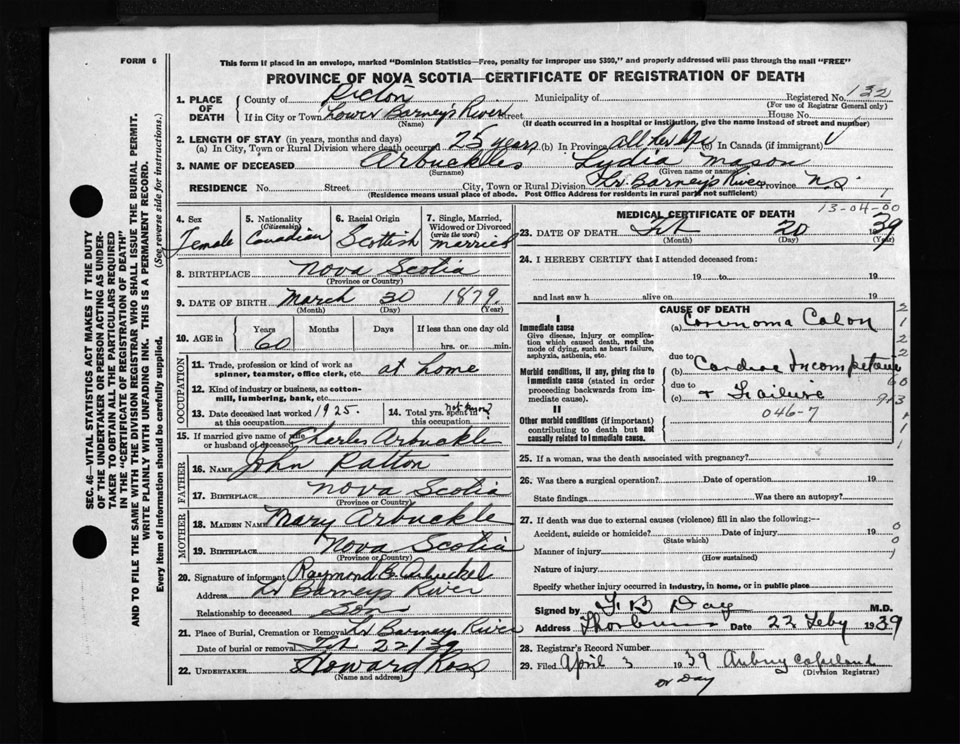 FORM 6
This form if placed in an envelope, marked "Dominion Statistics—Free, penalty for improper use $300," and properly addressed will pass through the mail "FREE"
PROVINCE OF NOVA SCOTIA—CERTIFICATE OF REGISTRATION OF DEATH
SEC. 46—VITAL STATISTICS ACT MAKES IT THE DUTY
OF THE UNDERTAKER OR PERSON ACTING AS UNDER-
TAKER TO OBTAIN ALL THE PARTICULARS REQUIRED
IN THE "CERTIFICATE OF REGISTRATION OF DEATH"
AND TO FILE THE SAME WITH THE DIVISION REGISTRAR WHO SHALL ISSUE THE BURIAL PERMIT.
WRITE PLAINLY WITH UNFADING INK. THIS IS A PERMANENT RECORD.
Every item of Information should be carefully supplied. (See reverse side for instructions.)
1. PLACE OF DEATH County of Pictou Municipality of Registered No. 132
(For use of Registrar General only)
If in City or Town Lower Barney's River Street House No.
(Name) (If death occurred in a hospital or institution, give the name instead of street and number)
2. LENGTH OF STAY (in years, months and days)
(a) In City, Town or Rural Division where death occurred 25 years (b) In Province all her life (c) In Canada (if immigrant)
3. NAME OF DECEASED Arbuckles Lydia Mason
(Surname) (Given name or names)
RESIDENCE No. Street City, Town or Rural Division Lr. Barney's River Province N.S.
(Residence means usual place of abode. Post Office Address for residents in rural parts not sufficient)
4. Sex Female
5. Nationality (Citizenship) Canadian
6. Racial Origin Scottish
7. Single, Married, Widowed or Divorced (write the word) married
8. BIRTHPLACE Nova Scotia
(Province or Country)
9. DATE OF BIRTH March 30 1879
(Month) (Day) (Year)
10. AGE in Years Months Days If less than one day old
60 hrs. or min.
OCCUPATION
11. Trade, profession or kind of work as spinner, teamster, office clerk, etc. at home
12. Kind of industry or business, as cotton-mill, lumbering, bank, etc.
13. Date deceased last worked at this occupation 1925.
14. Total yrs. spent in this occupation not known
15. If married give name of wife or husband of deceased Charles Arbuckle
FATHER
16. NAME John Patton
17. BIRTHPLACE Nova Scotia
(Province or Country)
MOTHER
18. MAIDEN NAME Mary Arbuckle
19. BIRTHPLACE Nova Scotia
(Province or Country)
20. Signature of informant Raymond B. Arbuckel
Address Lr Barneys River
Relationship to deceased Son
21. Place of Burial, Cremation or Removal Lr Barneys River
Date of burial or removal Feb 22/39
22. UNDERTAKER Howard Ross
(Name and address)
MEDICAL CERTIFICATE OF DEATH 13-04-00
23. DATE OF DEATH Feb 20 39
(Month) (Day) (Year)
24. I HEREBY CERTIFY that I attended deceased from:
19 to 19
and last saw h alive on 19
CAUSE OF DEATH
I
Immediate cause
Give disease, injury or complication which caused death, not the mode of dying, such as heart failure, asphyxia, asthenia, etc.
(a) Carcinoma Colon
due to
Morbid conditions, if any, giving rise to immediate cause (stated in order proceeding backwards from immediate cause).
(b) Cardiac Incompetance
due to
(c) & Failure
II
046-7
Other morbid conditions (if important) contributing to death but not causally related to immediate cause.
25. If a woman, was the death associated with pregnancy?
26. Was there a surgical operation? Date of operation 19
State findings Was there an autopsy?
27. If death was due to external causes (violence) fill in also the following:—
Accident, suicide or homicide? Date of injury 19
(State which)
Manner of injury
(How sustained)
Nature of injury
Specify whether injury occurred in industry, in home, or in public place
Signed by Day M.D.
Address Thorburn Date 22 Feby 1939
28. Registrar's Record Number
29. Filed April 3 1939 Aubrey Copeland
(Division Registrar)
or Day